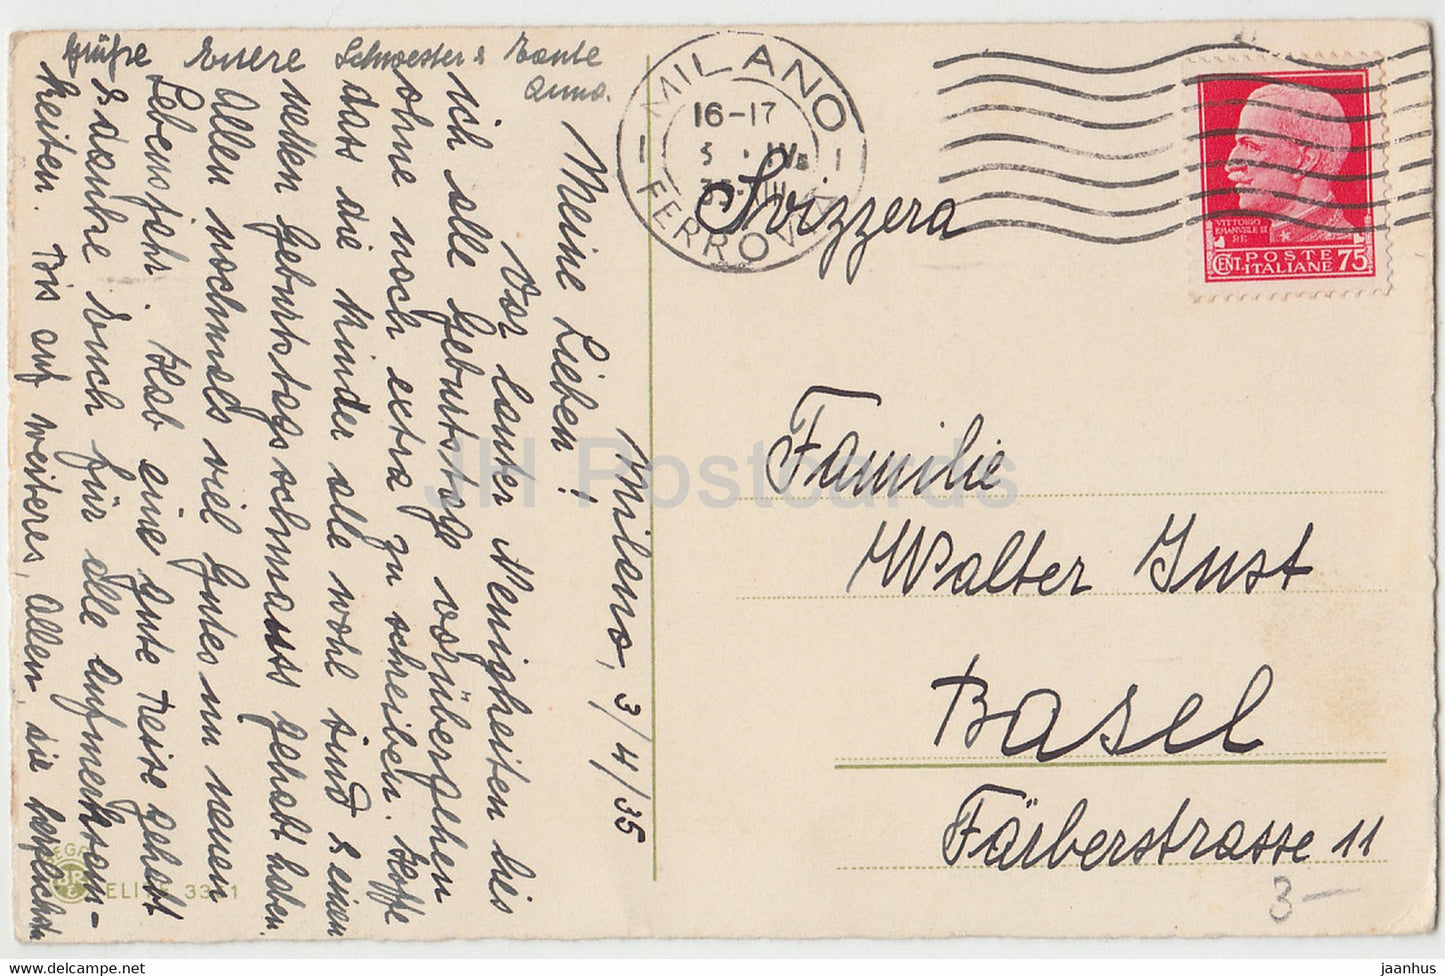 Milano, 3/4/35
Meine Lieben!
Vor lauter Neuigkeiten bis
ich alle Geburtstage vorübergehen
ohne noch extra zu schreiben. Hoffe
dass die Kinder alle wohl sind & einen
netten Geburtstagsschmauss gehabt haben.
Allen nochmals viel Gutes im neuen
Lebensjahr. Hab eine gute Reise gehabt
& danke Euch für alle Aufmerksam-
keiten. Bis auf weiteres, allen, die herzlichsten
Grüße Euere Schwester & Tante
Anna.
MILANO
16-17
5 . IV.
35-XIII
FERROVIA
VITTORIO
EMANUELE III
RE
POSTE
CENT. ITALIANE 75
Svizzera
Familie
Walter Just
Basel
Färberstrasse 11
3—
JH Postcards
ELITE
jaanhus
delcampe.net